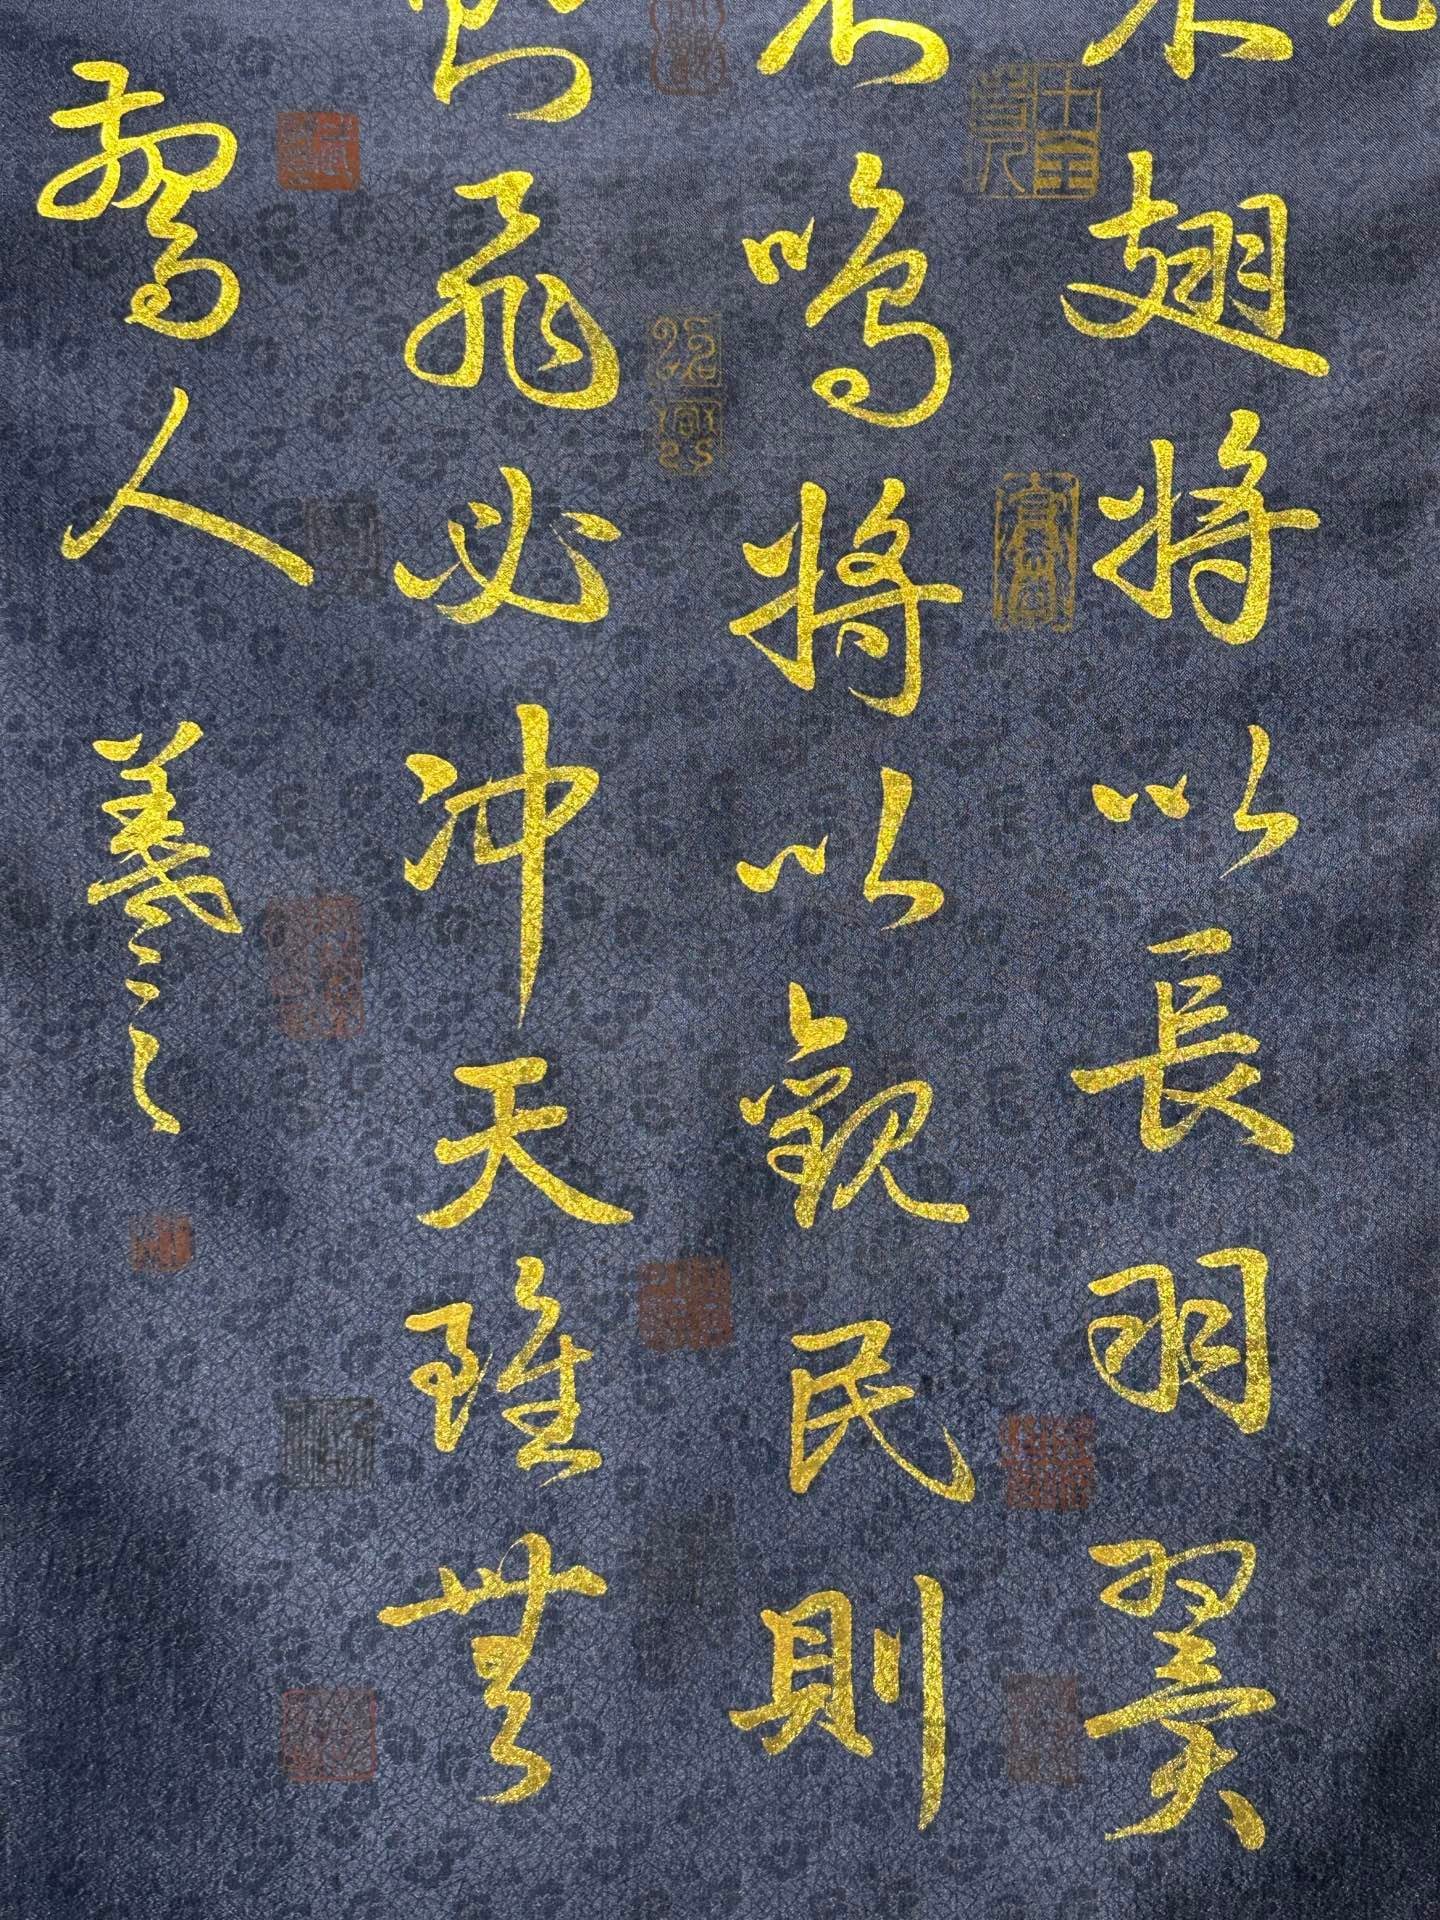 不翅將以長羽翼
不鳴將以觀民則
飛必冲天雖無
驚人 羲之
十全